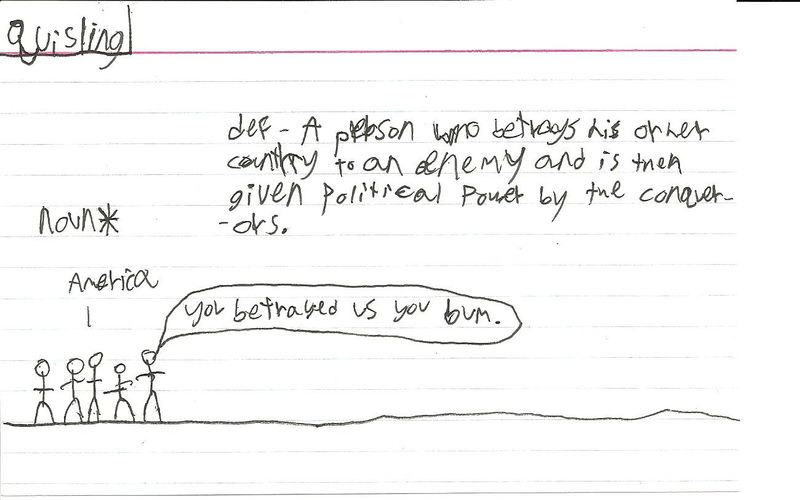 Quisling
def - A person who betrays his or her
country to an enemy and is then
given political power by the conquer-
-ors.
noun*
America
you betrayed us you bum.